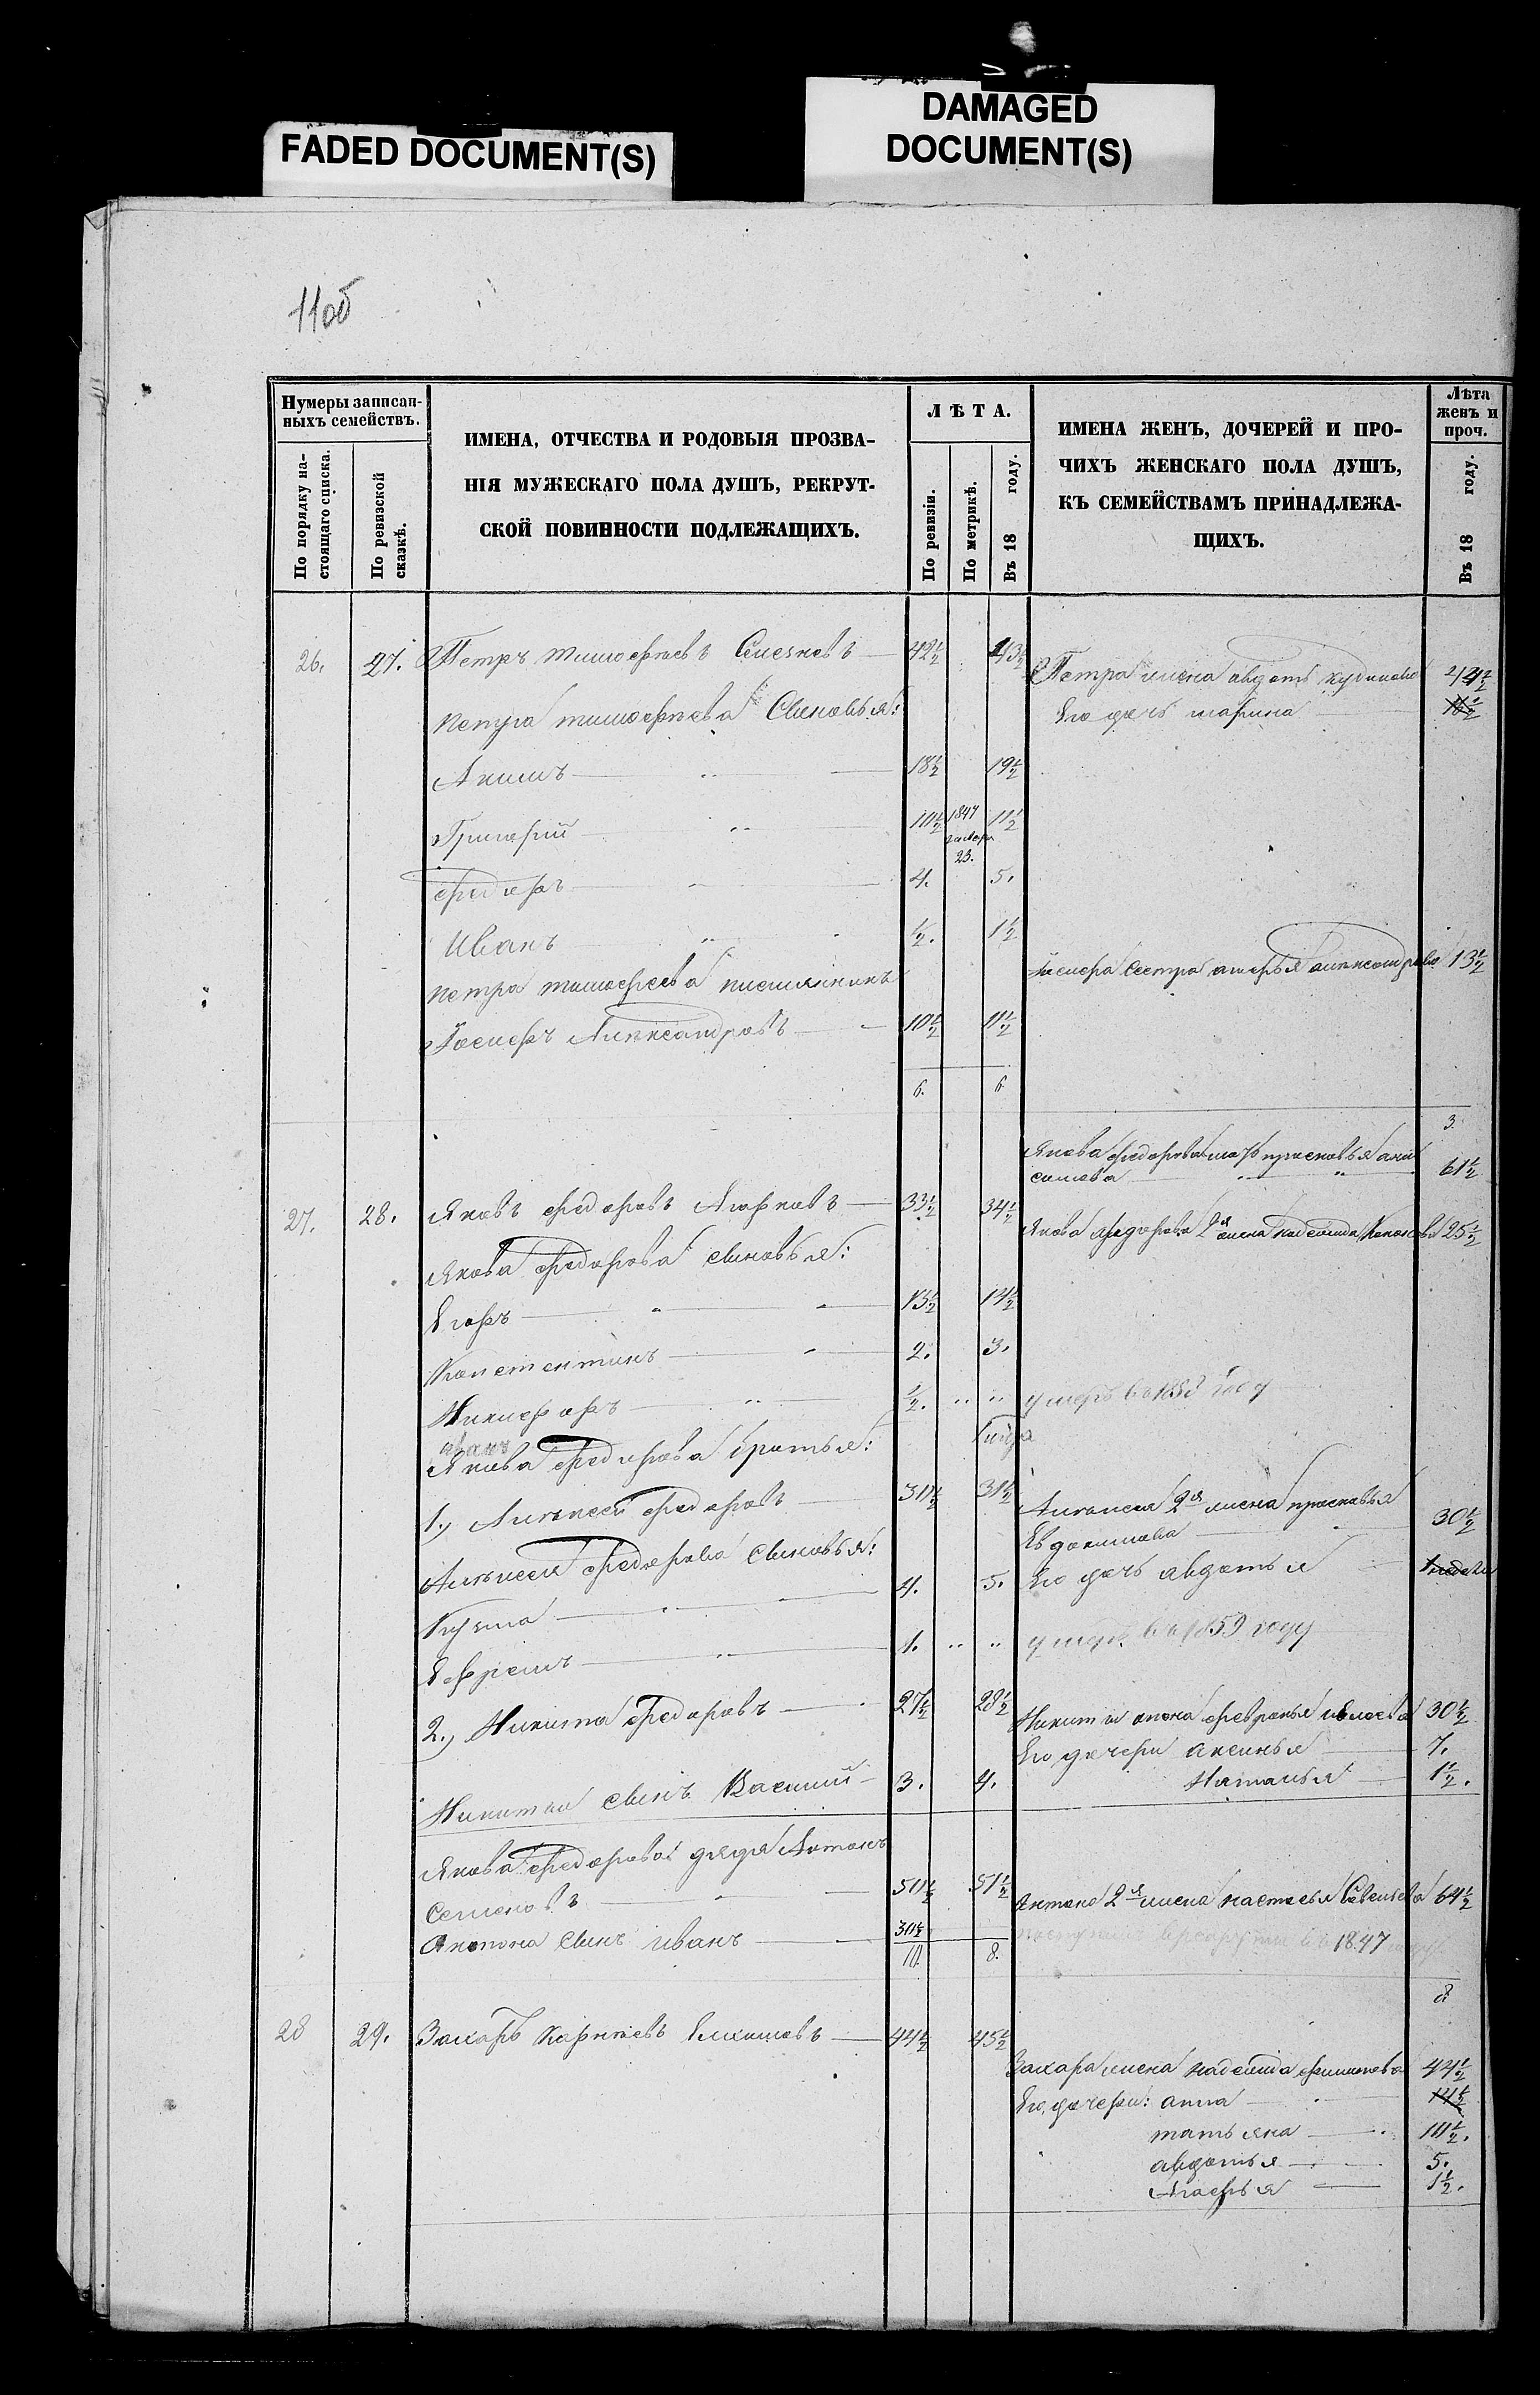 FADED DOCUMENT(S)
DAMAGED
DOCUMENT(S)
11об
Нумеры записан-
ныхъ семействъ.
По порядку на-
стоящаго списка.
По ревизской
сказкѣ.
ИМЕНА, ОТЧЕСТВА И РОДОВЫЯ ПРОЗВА-
НІЯ МУЖЕСКАГО ПОЛА ДУШЪ, РЕКРУТ-
СКОЙ ПОВИННОСТИ ПОДЛЕЖАЩИХЪ.
ЛѢТА.
По ревизіи.
По метрикѣ.
Въ 18 году.
ИМЕНА ЖЕНЪ, ДОЧЕРЕЙ И ПРО-
ЧИХЪ ЖЕНСКАГО ПОЛА ДУШЪ,
КЪ СЕМЕЙСТВАМЪ ПРИНАДЛЕЖА-
ЩИХЪ.
Лѣта
женъ и
проч.
Въ 18 году.
26. 27. Петръ тимофѣевъ Селезневъ 42½ 43½
Петра жена авдоть 44½
Его дочь марина
Петра тимофѣева Сыновья:
Акимъ 18½ 19½
Григорій 10½ 1847 11½
23.
федоръ 4. 5.
Иванъ ½. 1½
Іосифа сестра александрова 13½
петра тимофеева племянникъ
Іосифъ Александровъ 10½ 11½
6. 6
3.
Якова федорова мать прасковья ани
симова 61½
27. 28. Яковъ федоровъ 33½ 34½
Якова федорова 2я жена надежда 25½
Якова федорова сыновья:
Егоръ 13½ 14½
Констентинъ 2. 3.
Никифоръ ½. умеръ въ 1858 году
Иванъ
Якова федорова братья:
1.) Алексей федоровъ 30½ 31½
Алексея 2я жена прасковья
Евдокимова 30½
Алексея федорова сыновья:
Его дочь авдотья
Кузма 4. 5.
Ефремъ 1. умеръ въ 1859 году
2.) Никита федоровъ 27½ 28½
Никиты жена февронья 30½
Его дочери аксинья 7.
Наталья 1½.
Никиты сынъ Василий 3. 4.
Якова федорова дядя Антонъ
Семеновъ 50½ 51½
Антона 2я жена настасья Савельева 64½
Антона сынъ иванъ 30½
въ 1847
10. 8.
8
28 29. Захаръ Карпѣевъ 44½ 45½
Захара жена надежда филипова 44½
Его дочери: анна 14½
татьяна 10½.
авдотья 5.
Агафья 1½.